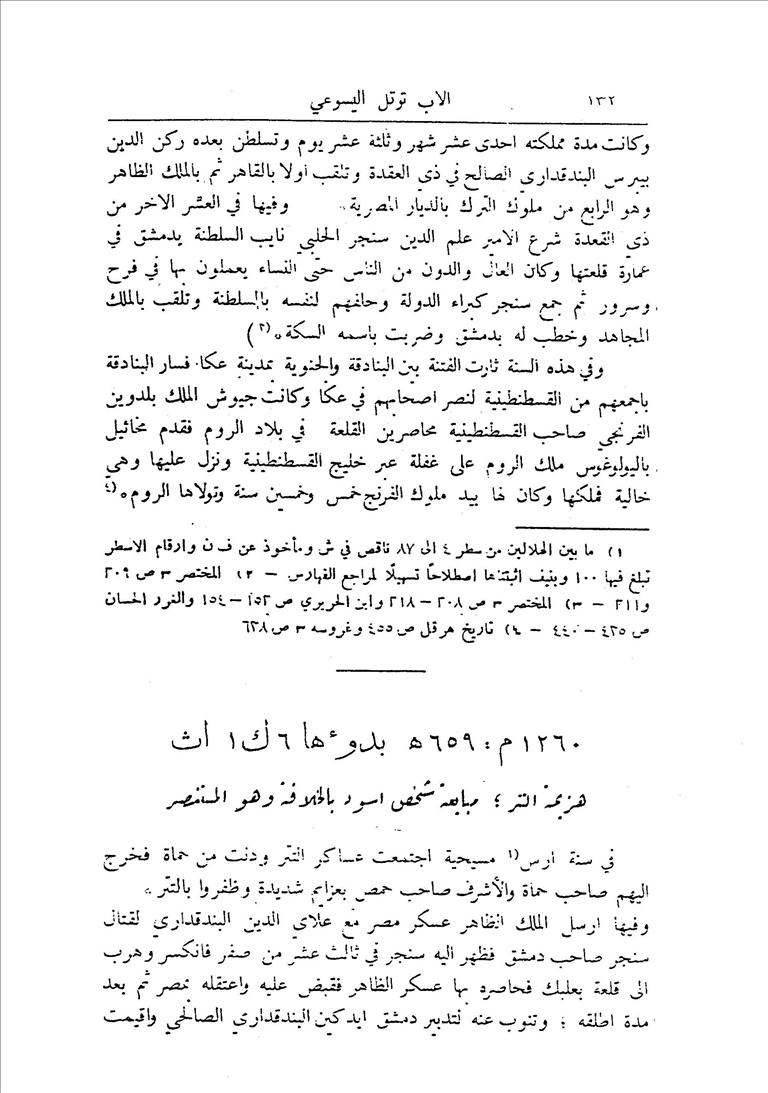 ١٣٢ الاب توتل اليسوعي
وكانت مدة مملكته احدى عشر شهر وثلثة عشر يوم وتسلطن بعده ركن الدين
بيبرس البندقداري الصالح في ذي العقدة وتلقب اولا بالقاهر ثم بالملك الظاهر
وهو الرابع من ملوك الترك بالديار المصرية. وفيها في العشر الاخر من
ذي القعدة شرع الامير علم الدين سنجر الحلبي نايب السلطنة بدمشق في
عمارة قلعتها وكان العال والدون من الناس حتى النساء يعملون بها في فرح
وسرور ثم جمع سنجر كبراء الدولة وحلفهم لنفسه بالسلطنة وتلقب بالملك
المجاهد وخطب له بدمشق وضربت باسمه السكة. (٣)
وفي هذه السنة ثارت الفتنة بين البنادقة والجنوية بمدينة عكا. فسار البنادقة
باجمعهم من القسطنطينية لنصر اصحابهم في عكا وكانت جيوش الملك بلدوين
الفرنجي صاحب القسطنطينية محاصرين القلعة في بلاد الروم فقدم مخائيل
باليولوغوس ملك الروم على غفلة عبر خليج القسطنطينية ونزل عليها وهي
خالية فملكها وكان لها بيد ملوك الفرنج خمس وخمسين سنة وتولاها الروم. (٤
١) ما بين الهلالين من سطر ٤ الى ٨٧ ناقص في ش ومأخوذ عن ف ن وارقام الاسطر
تبلغ فيها ١٠٠ ونيف اثبتناها اصطلاحًا تسهيلًا لمراجع الفهارس – ٢) المختصر ٣ ص ٢٠٩
و٢١١ – ٣) المختصر ٣ ص ٢٠٨ – ٢١٨ وابن الحريري ص ١٥٢ – ١٥٤ والغرر الحسان
ص ٤٢٥ – ٤٤٠ – ٤) تاريخ هرقل ص ٤٥٥ وغروسه ٣ ص ٦٢٨
١٢٦٠ م : ٦٥٩ ه بدوءها ٦ ك ١ اث
هزيمة التتر ؛ مبايعة شخص اسود بالخلافة وهو المستنصر
في سنة ارس (١ مسيحية اجتمعت عساكر التتر ودنت من حماة فخرج
اليهم صاحب حماة والأشرف صاحب حمص بعزايم شديدة وظفروا بالتتر.
وفيها ارسل الملك الظاهر عسكر مصر مع علاي الدين البندقداري لقتال
سنجر صاحب دمشق فظهر اليه سنجر في ثالث عشر من صفر فانكسر وهرب
الى قلعة بعلبك فحاصره بها عسكر الظاهر فقبض عليه واعتقله بمصر ثم بعد
مدة اطلقه ؛ وتنوب عنه لتدبير دمشق ايدكين البندقداري الصالحي واقيمت